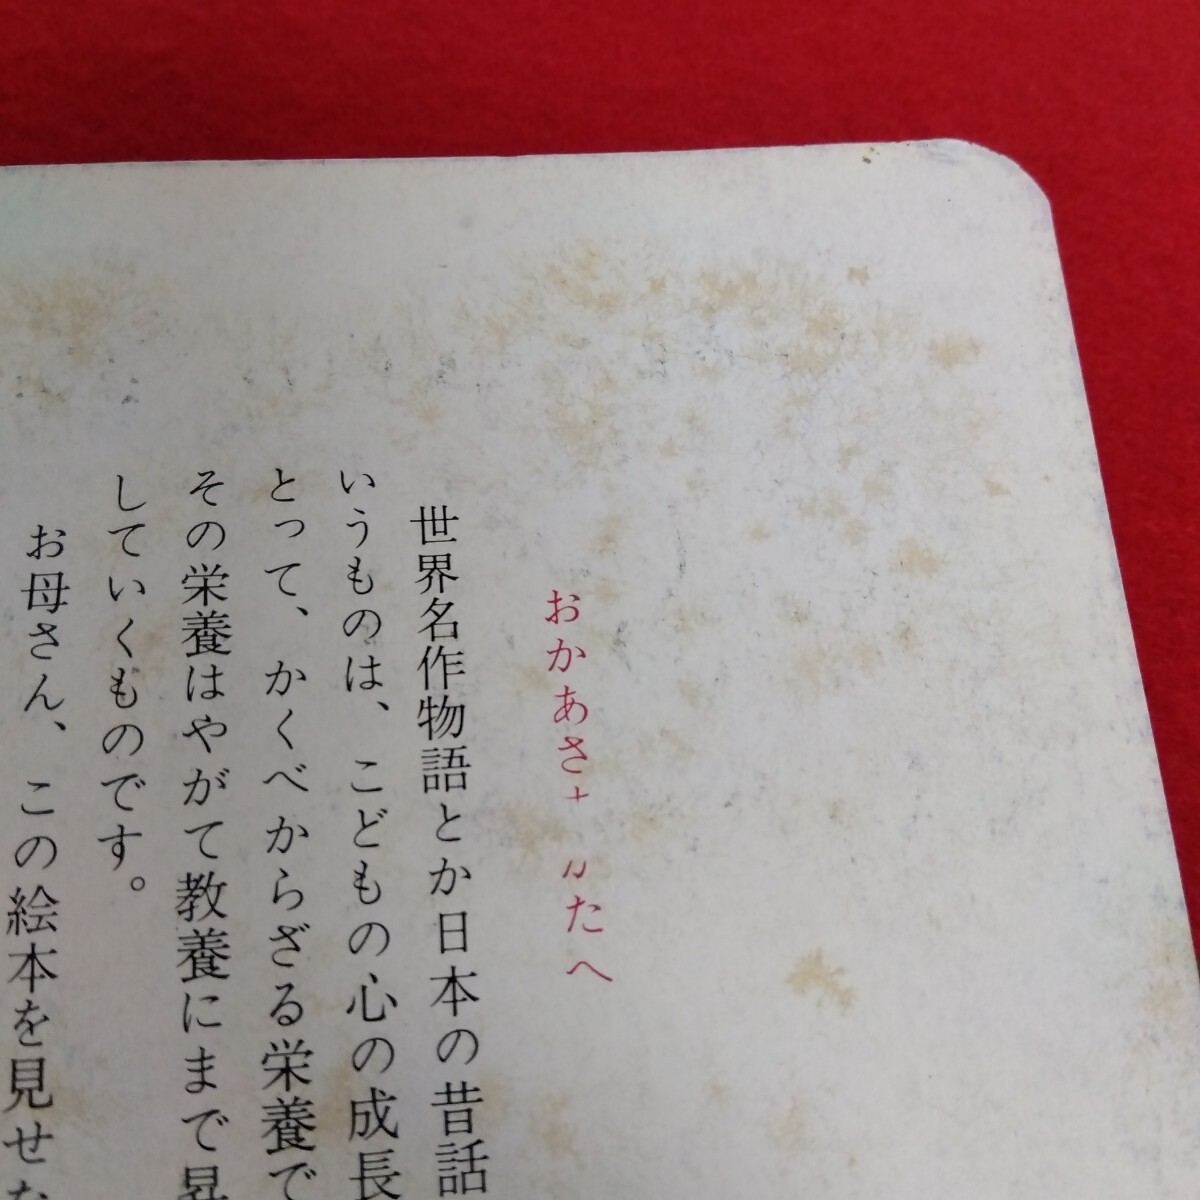 おかあさ たへ
世界名作物語とか日本の昔話
いうものは、こどもの心の成長
とって、かくべからざる栄養で
その栄養はやがて教養にまで昇
していくものです。
お母さん、この絵本を見せな